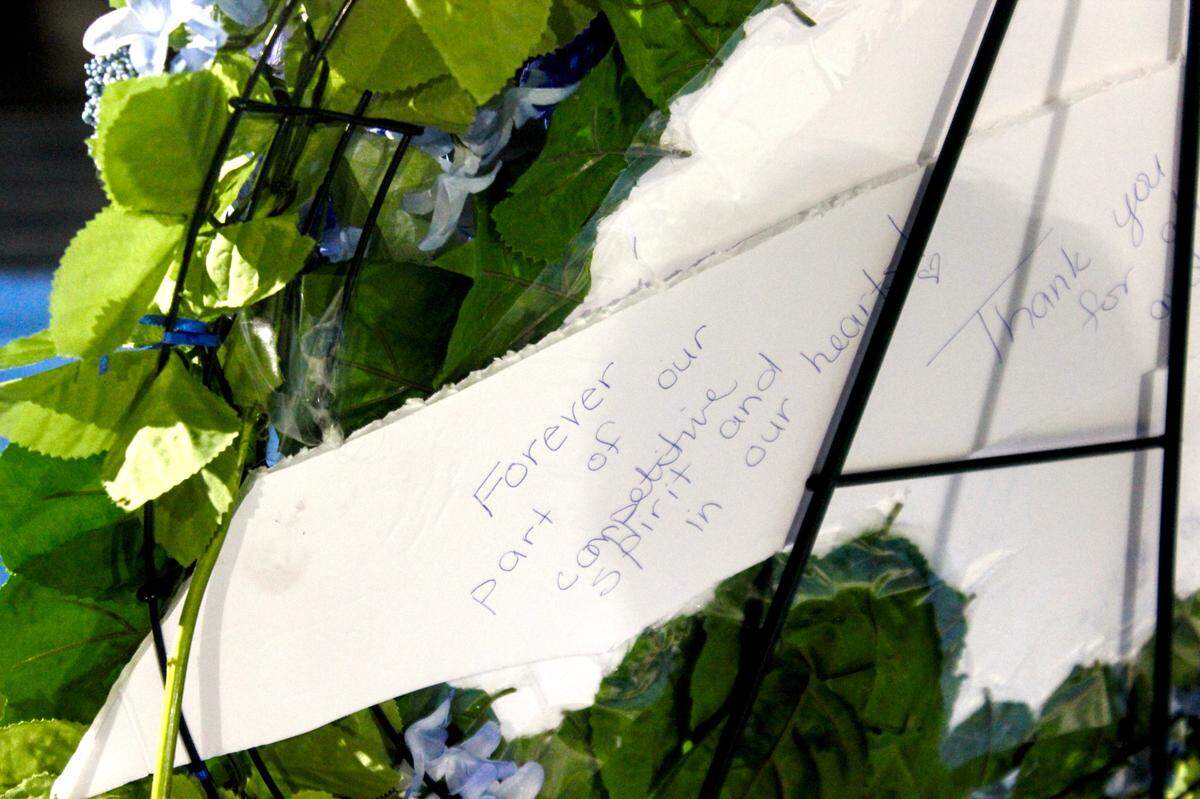 Forever
part of our
competitive
spirit and
in our hearts ♡
Thank you
for